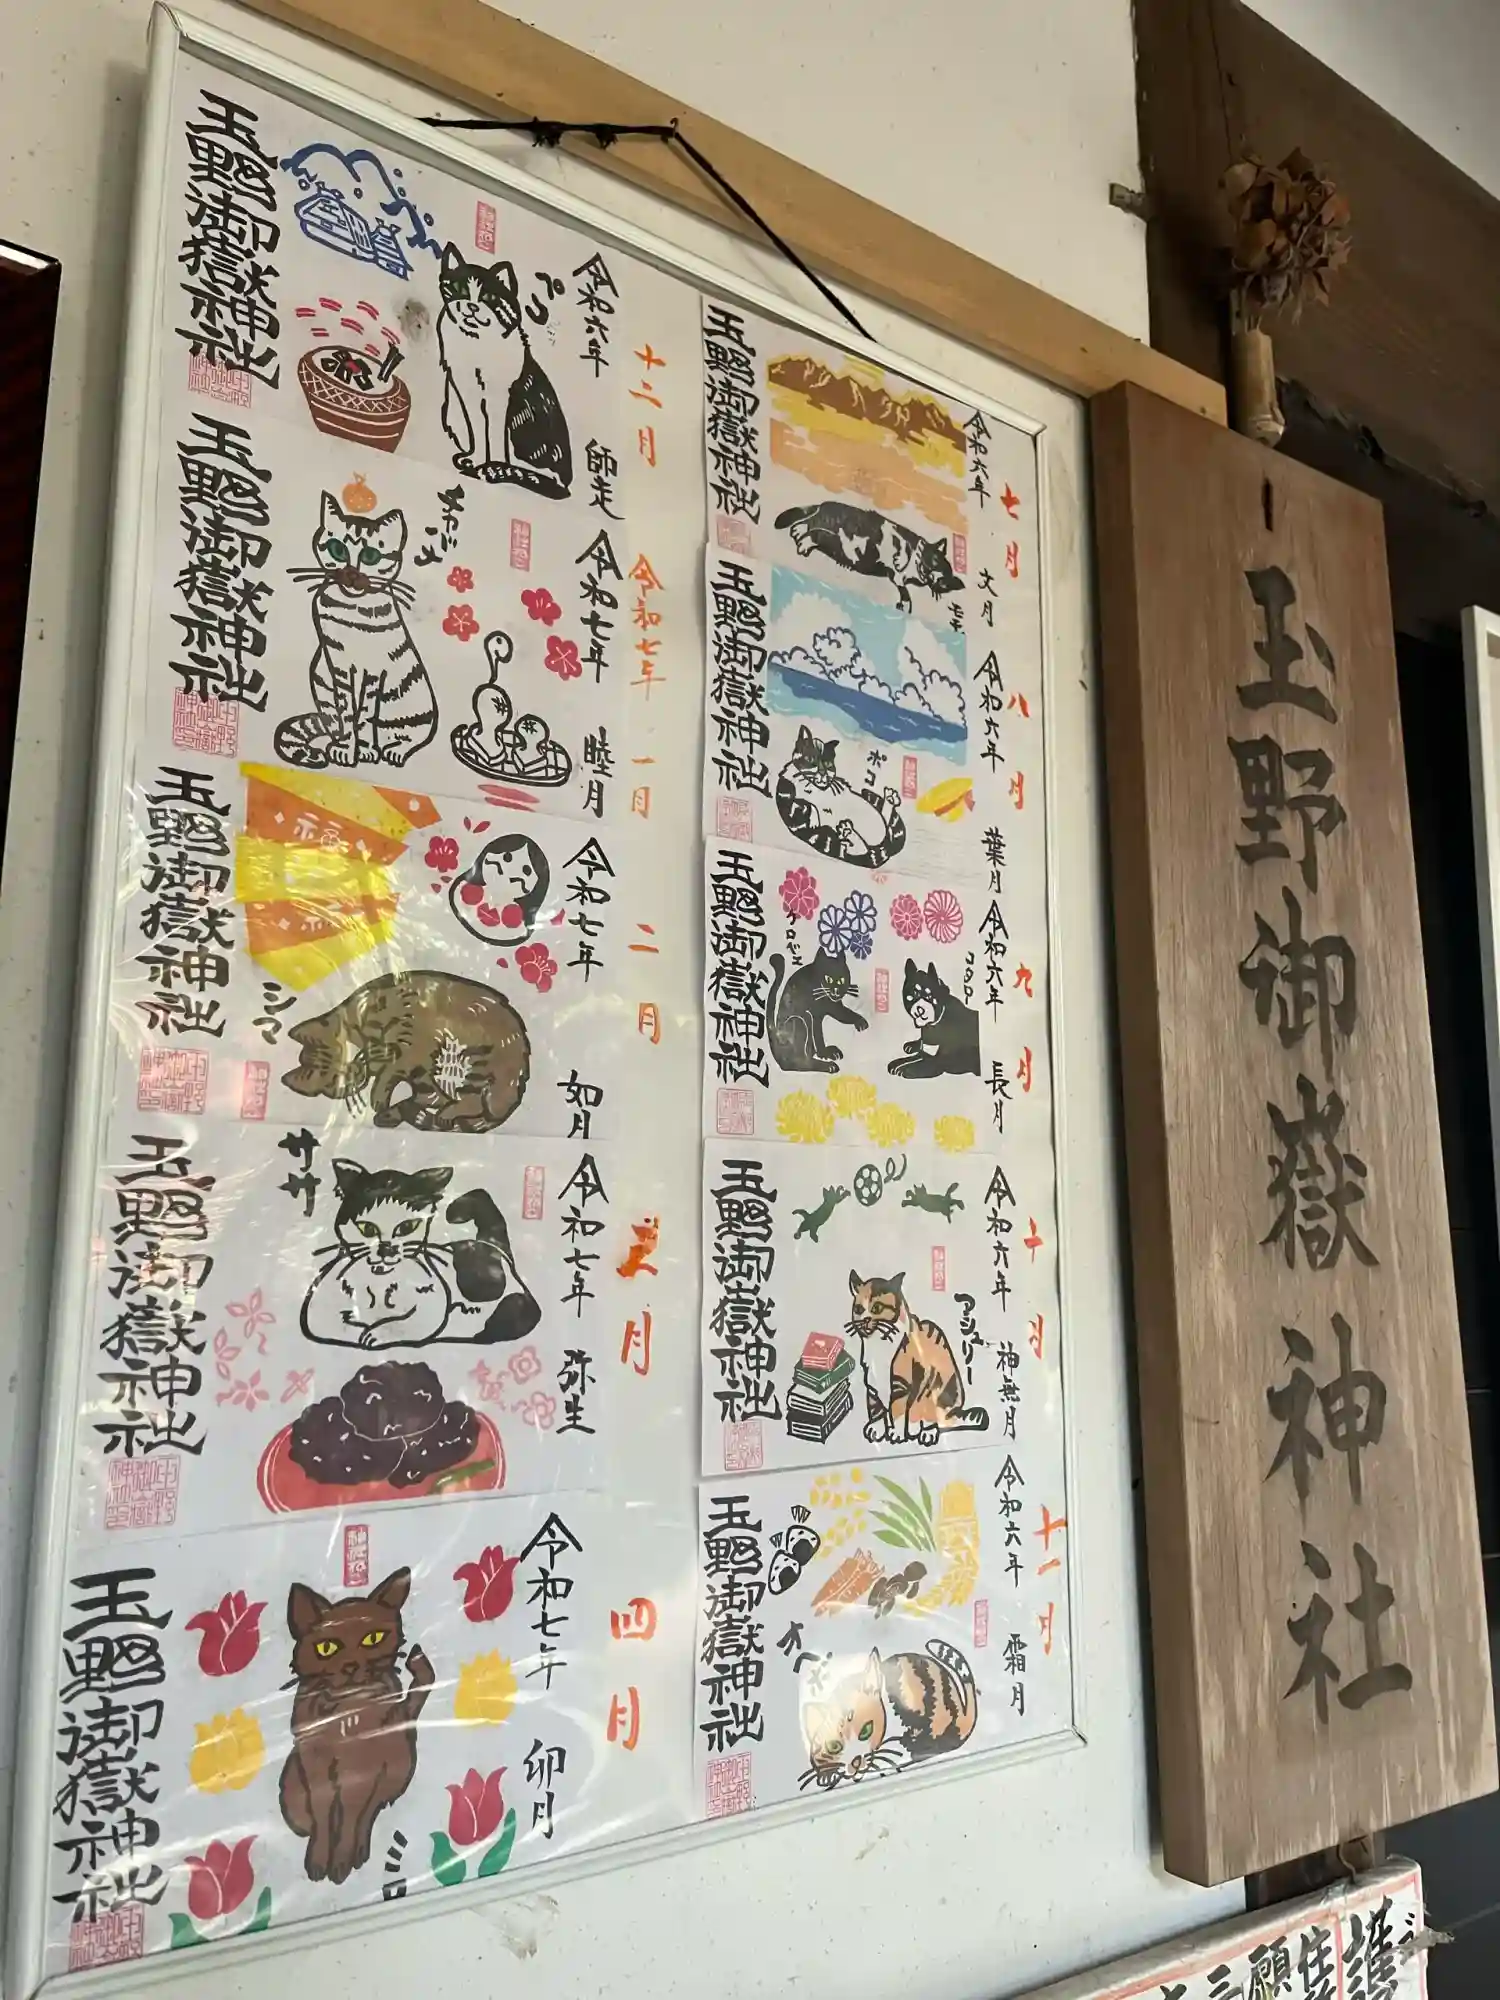 玉野御嶽神社
ペコ
令和六年
師走
十二月
玉野御嶽神社
令和七年
睦月
令和七年
一月
玉野御嶽神社
福
シマ
令和七年
如月
二月
玉野御嶽神社
ササ
令和七年
弥生
三月
玉野御嶽神社
ミロ
令和七年
卯月
四月
玉野御嶽神社
令和六年
文月
七月
玉野御嶽神社
ポコ
令和六年
葉月
八月
玉野御嶽神社
ケロベエ
コタロウ
令和六年
長月
九月
玉野御嶽神社
アシュリー
令和六年
神無月
十月
玉野御嶽神社
令和六年
霜月
十一月
玉野御嶽神社